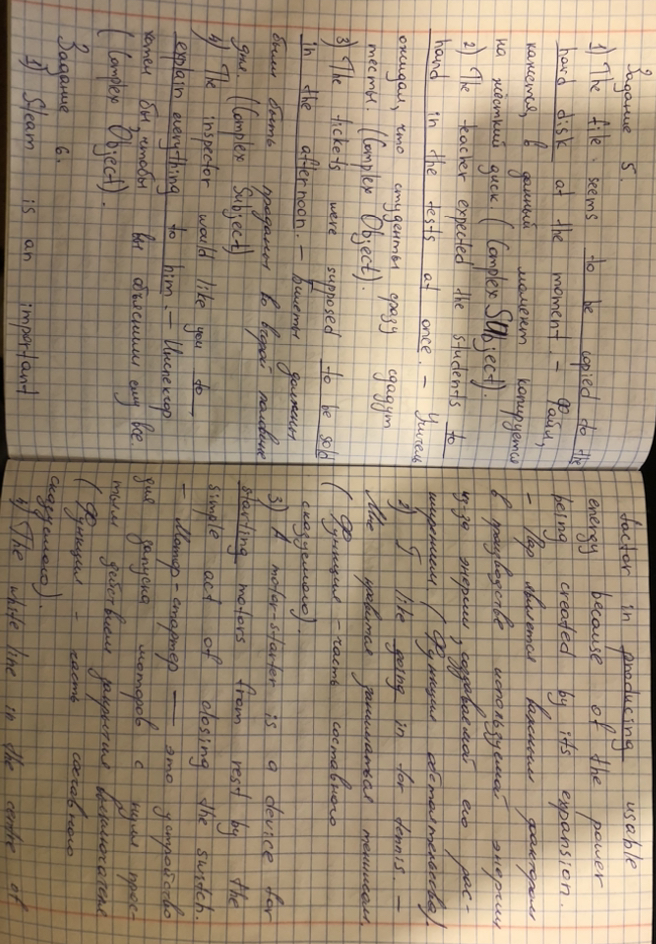 Задание 5.
1) The file seems to be copied to the
hard disk at the moment. – Файл,
кажется, в данный момент копируется
на жёсткий диск (Complex Subject).
2) The teacher expected the students to
hand in the tests at once. – Учитель
ожидал, что студенты сразу сдадут
тесты. (Complex Object).
3) The tickets were supposed to be sold
in the afternoon. – Билеты должны
были быть проданы во второй половине
дня. (Complex Subject)
4) The inspector would like you to
explain everything to him. – Инспектор
хотел бы, чтобы вы объяснили ему все.
(Complex Object).
Задание 6.
1) Steam is an important
factor in producing usable
energy because of the power
being created by its expansion.
– Пар является важным фактором
в производстве используемой энергии
из-за энергии, создаваемой его рас-
ширением. (Функция обстоятельства).
2) I like going in for tennis. –
Мне нравится заниматься теннисом.
(Функция – часть составного
сказуемого)
3) A motor-starter is a device for
starting motors from rest by the
simple act of closing the switch.
– Мотор-стартер – это устройство
для запуска моторов с нуля прос-
тым действием закрытия выключателя
(Функция – часть составного
сказуемого).
4) The white line in the centre of